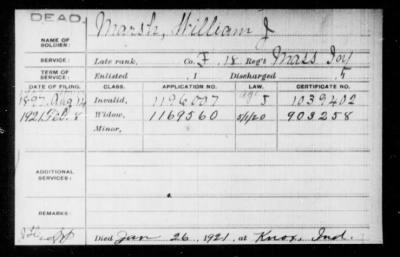 DEAD.
NAME OF SOLDIER: Marsh, William J
SERVICE: Late rank, Co. F, 18 Reg't Mass. Inf
TERM OF SERVICE: Enlisted , 1 Discharged , 5
DATE OF FILING. CLASS. APPLICATION NO. LAW. CERTIFICATE NO.
1897. Aug 14 Invalid, 1196007 J 1039402
1921 Feb. 8 Widow, 1169560 5/1/20 903258
Minor,
ADDITIONAL SERVICES:
REMARKS:
Died Jan 26, 1921, at Knox, Ind.